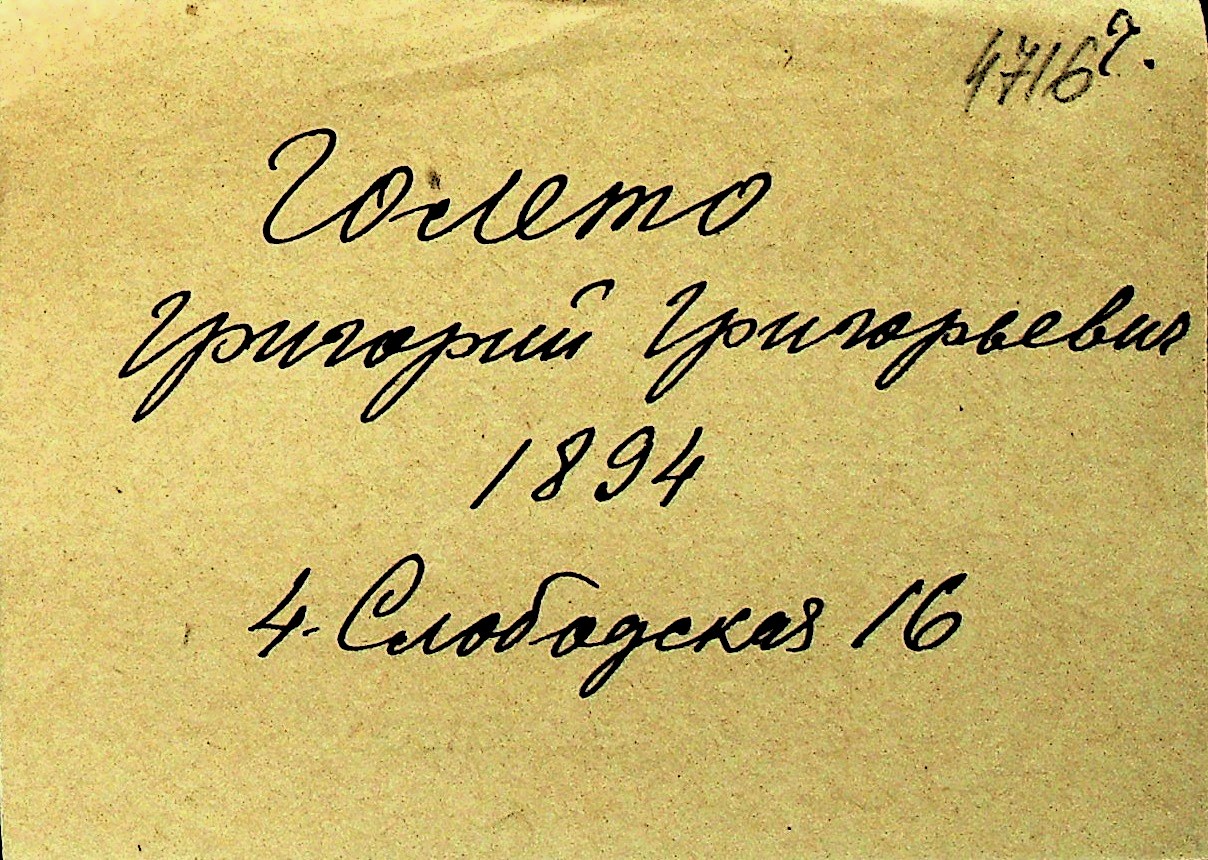 4716 г.
Голето
Григорий Григорьевич
1894
4. Слободская 16